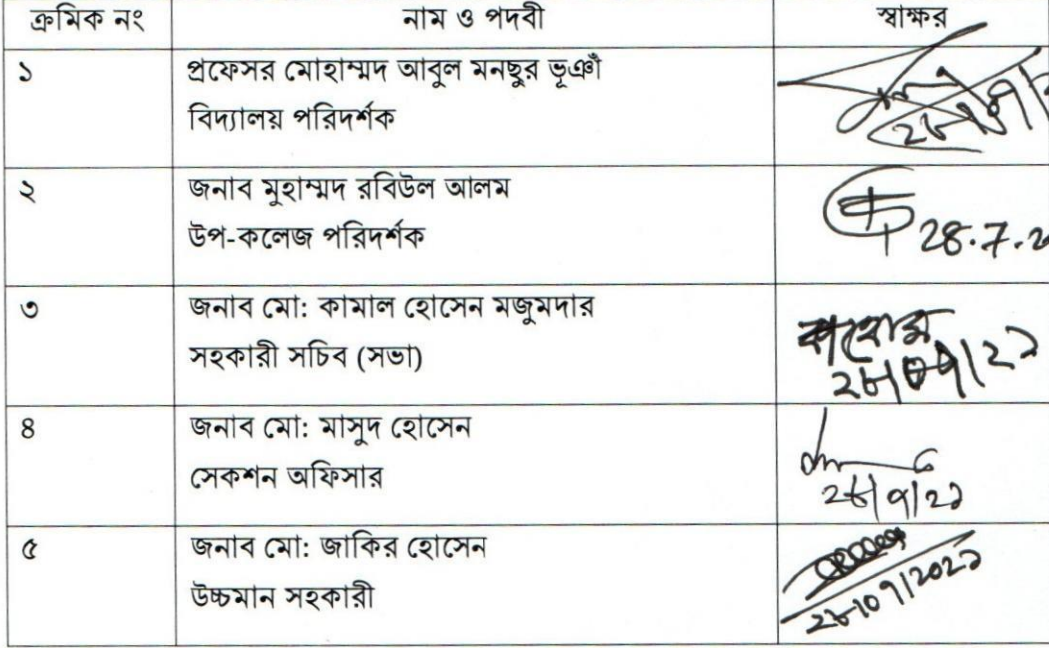 ক্রমিক নং নাম ও পদবী স্বাক্ষর
১ প্রফেসর মোহাম্মদ আবুল মনছুর ভূঞাঁ
বিদ্যালয় পরিদর্শক
২ জনাব মুহাম্মদ রবিউল আলম
উপ-কলেজ পরিদর্শক 28.7.2
৩ জনাব মো: কামাল হোসেন মজুমদার
সহকারী সচিব (সভা)
৪ জনাব মো: মাসুদ হোসেন
সেকশন অফিসার ২৮/৭/২১
৫ জনাব মো: জাকির হোসেন
উচ্চমান সহকারী ২৮/০৭/২০২১